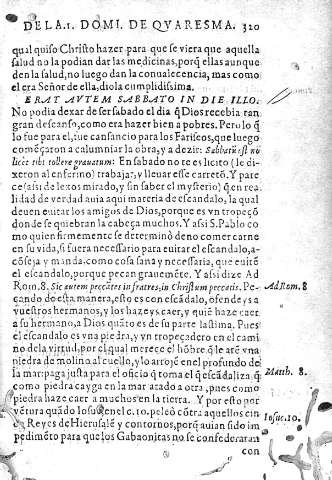 DE LA .1. DOMI. DE QVARESMA. 320
qual quiso Christo hazer para que se viera que aquella
salud no la podian dar las medicinas, porq̃ ellas aunque
den la salud, no luego dan la conualecencia, mas como
el era Señor de ella, diola cumplidissima.
ERAT AVTEM SABBATO IN DIE ILLO.
No podia dexar de ser sabado el dia q̃ Dios recebia tan
gran descanso, como era hazer bien a pobres. Pero lo q̃
lo fue para el, fue cansancio para los Fariseos, que luego
começaron a calumniar la obra, y a dezir: Sabbatũ est no
licet tibi tollere grauatum: En sabado no te es licito (le di-
xeron al enfermo) trabajar, y lleuar esse carretõ. Y pare
ce (assi de lexos mirado, y sin saber el mysterio) q̃ en rea
lidad de verdad auia aqui materia de escandalo, la qual
deuen euitar los amigos de Dios, porque es vn tropeçõ
donde se quiebran la cabeça muchos. Y assi S. Pablo co
mo quien firmemente se determinò de no comer carne
en su vida, si fuera necessario para euitar el escandalo, a-
cõseja y manda como cosa sana y necessaria, que euitẽ
el escandalo, porque pecan grauemẽte. Y assi dize Ad
Rom. 8. Sic autem peccãtes in fratres, in Christum peccatis. Pe-
cando de esta manera, esto es con escãdalo, ofendeys a
vuestros hermanos, y los hazeys caer, y quiẽ haze caer
a su hermano, a Dios quãto es de su parte lastima. Pues
el escandalo es vna piedra, y vn tropeçadero en el cami
no de la virtud, por el qual merece el hõbre, q̃ le atẽ vna
piedra de molino al cuello, y lo arrojẽ en el profundo de
la mar: paga justa para el oficio q̃ toma el q̃ escãdaliza, q̃
como piedra cayga en la mar atado a otra, pues como
piedra haze caer a muchos en la tierra. Y por esto por
vẽtura quãdo Iosue en el c. 10. peleò cõtra aquellos cin
co Reyes de Hierusalẽ y contornos, porq̃ auian sido im
pedimẽto para que los Gabaonitas no se confederaran
con
Ad Rom. 8
Matth. 8.
Iosue. 10.